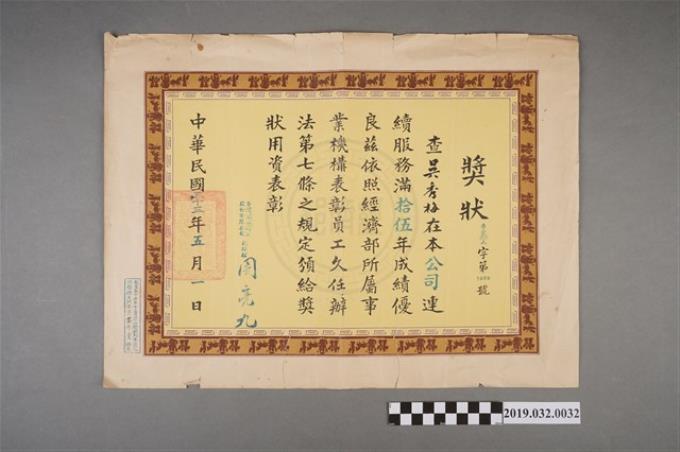 獎狀
字第
號
查吳秀梅在本公司連
續服務滿拾伍年成績優
良茲依照經濟部所屬事
業機構表彰員工久任辦
法第七條之規定頒給獎
狀用資表彰
周亮九
中華民國 三年五月一日
2019.032.0032